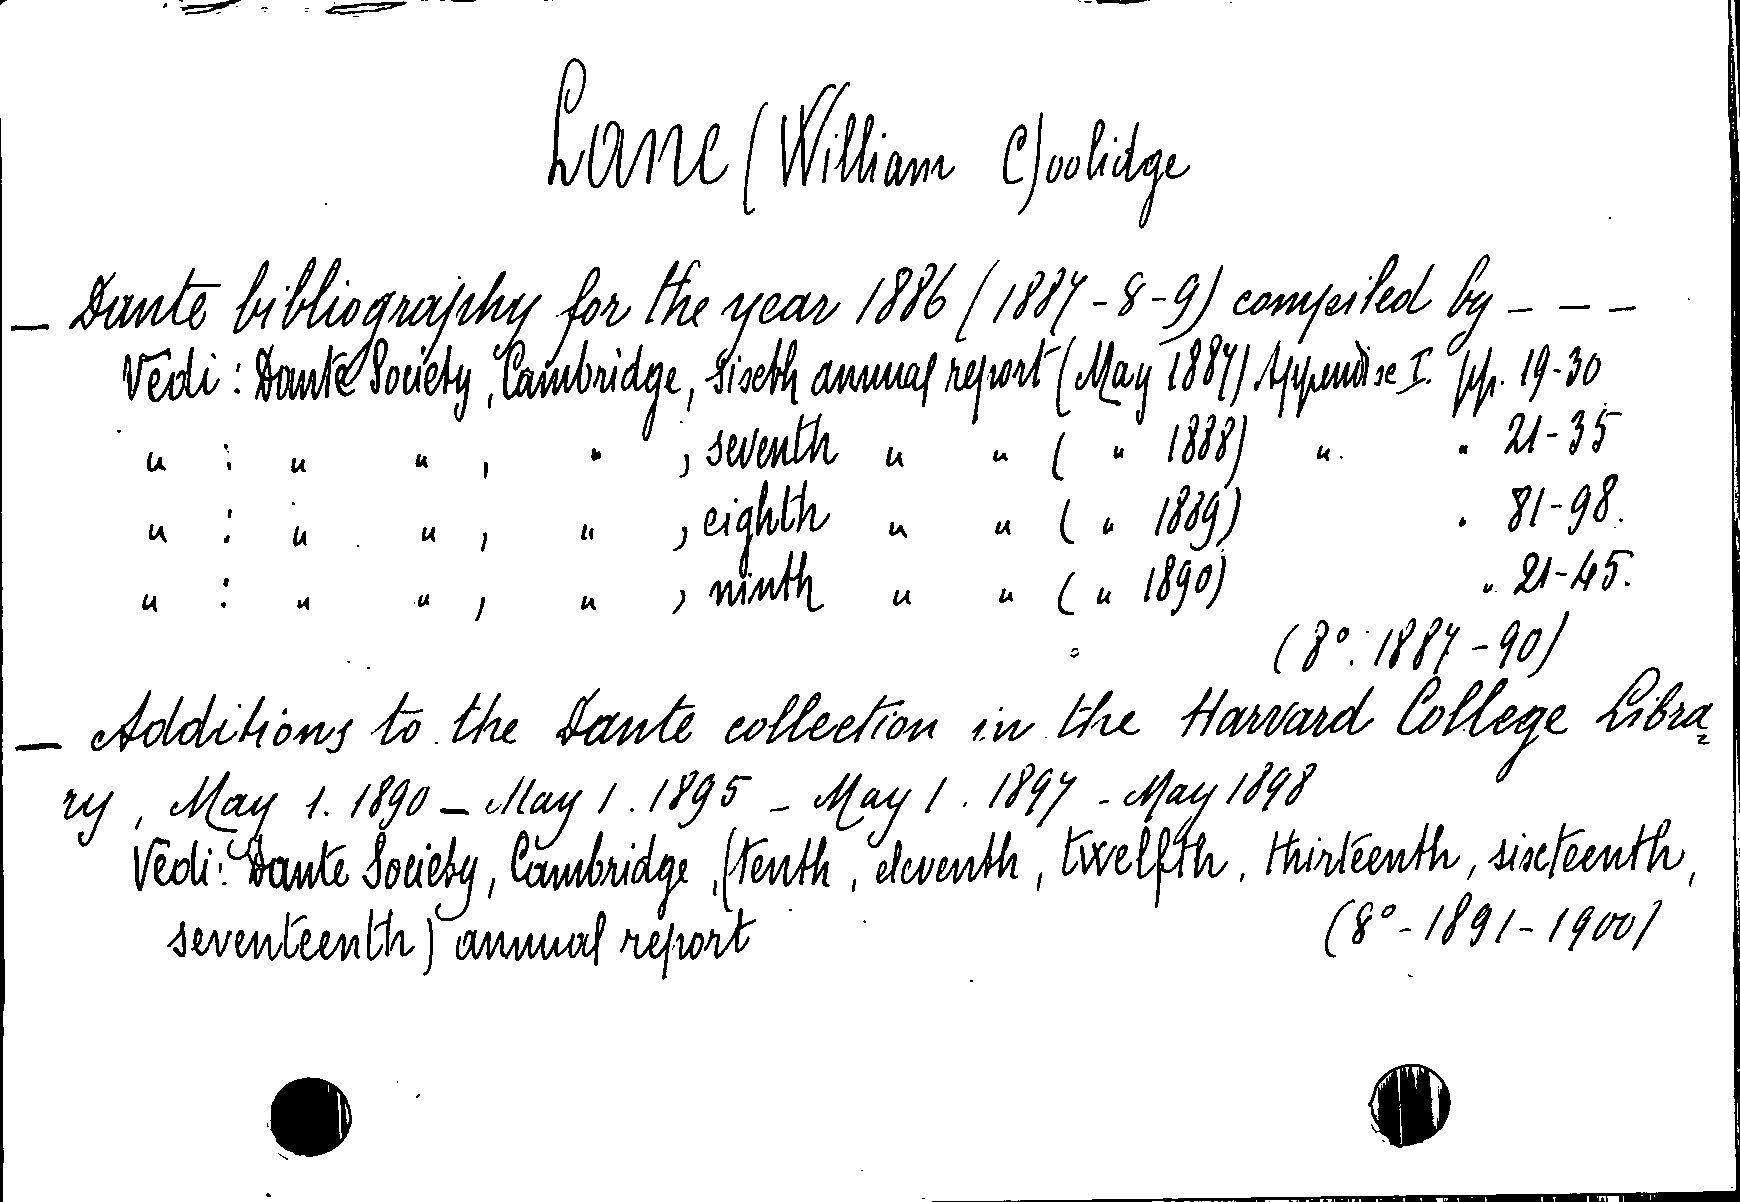 Lane (William C)oolidge
_ Dante bibliography for the year 1886 (1887-8-9) compiled by - - -
Vedi : Dante Society, Cambridge, Sixth annual report (May 1887) Appendix I. pp. 19-30
" : " " , " , seventh " " ( " 1888) " . " 21-35
" : " " , " , eighth " " ( " 1889) " 81-98.
" : " " , " , ninth " " ( " 1890) " 21-45.
(8°. 1887-90)
_ Additions to the Dante collection in the Harvard College Libra=
ry, May 1. 1890 _ May 1. 1895 - May 1. 1897 - May 1898
Vedi: Dante Society, Cambridge, (tenth, eleventh, twelfth, thirteenth, sixteenth,
seventeenth) annual report (8°-1891-1900)